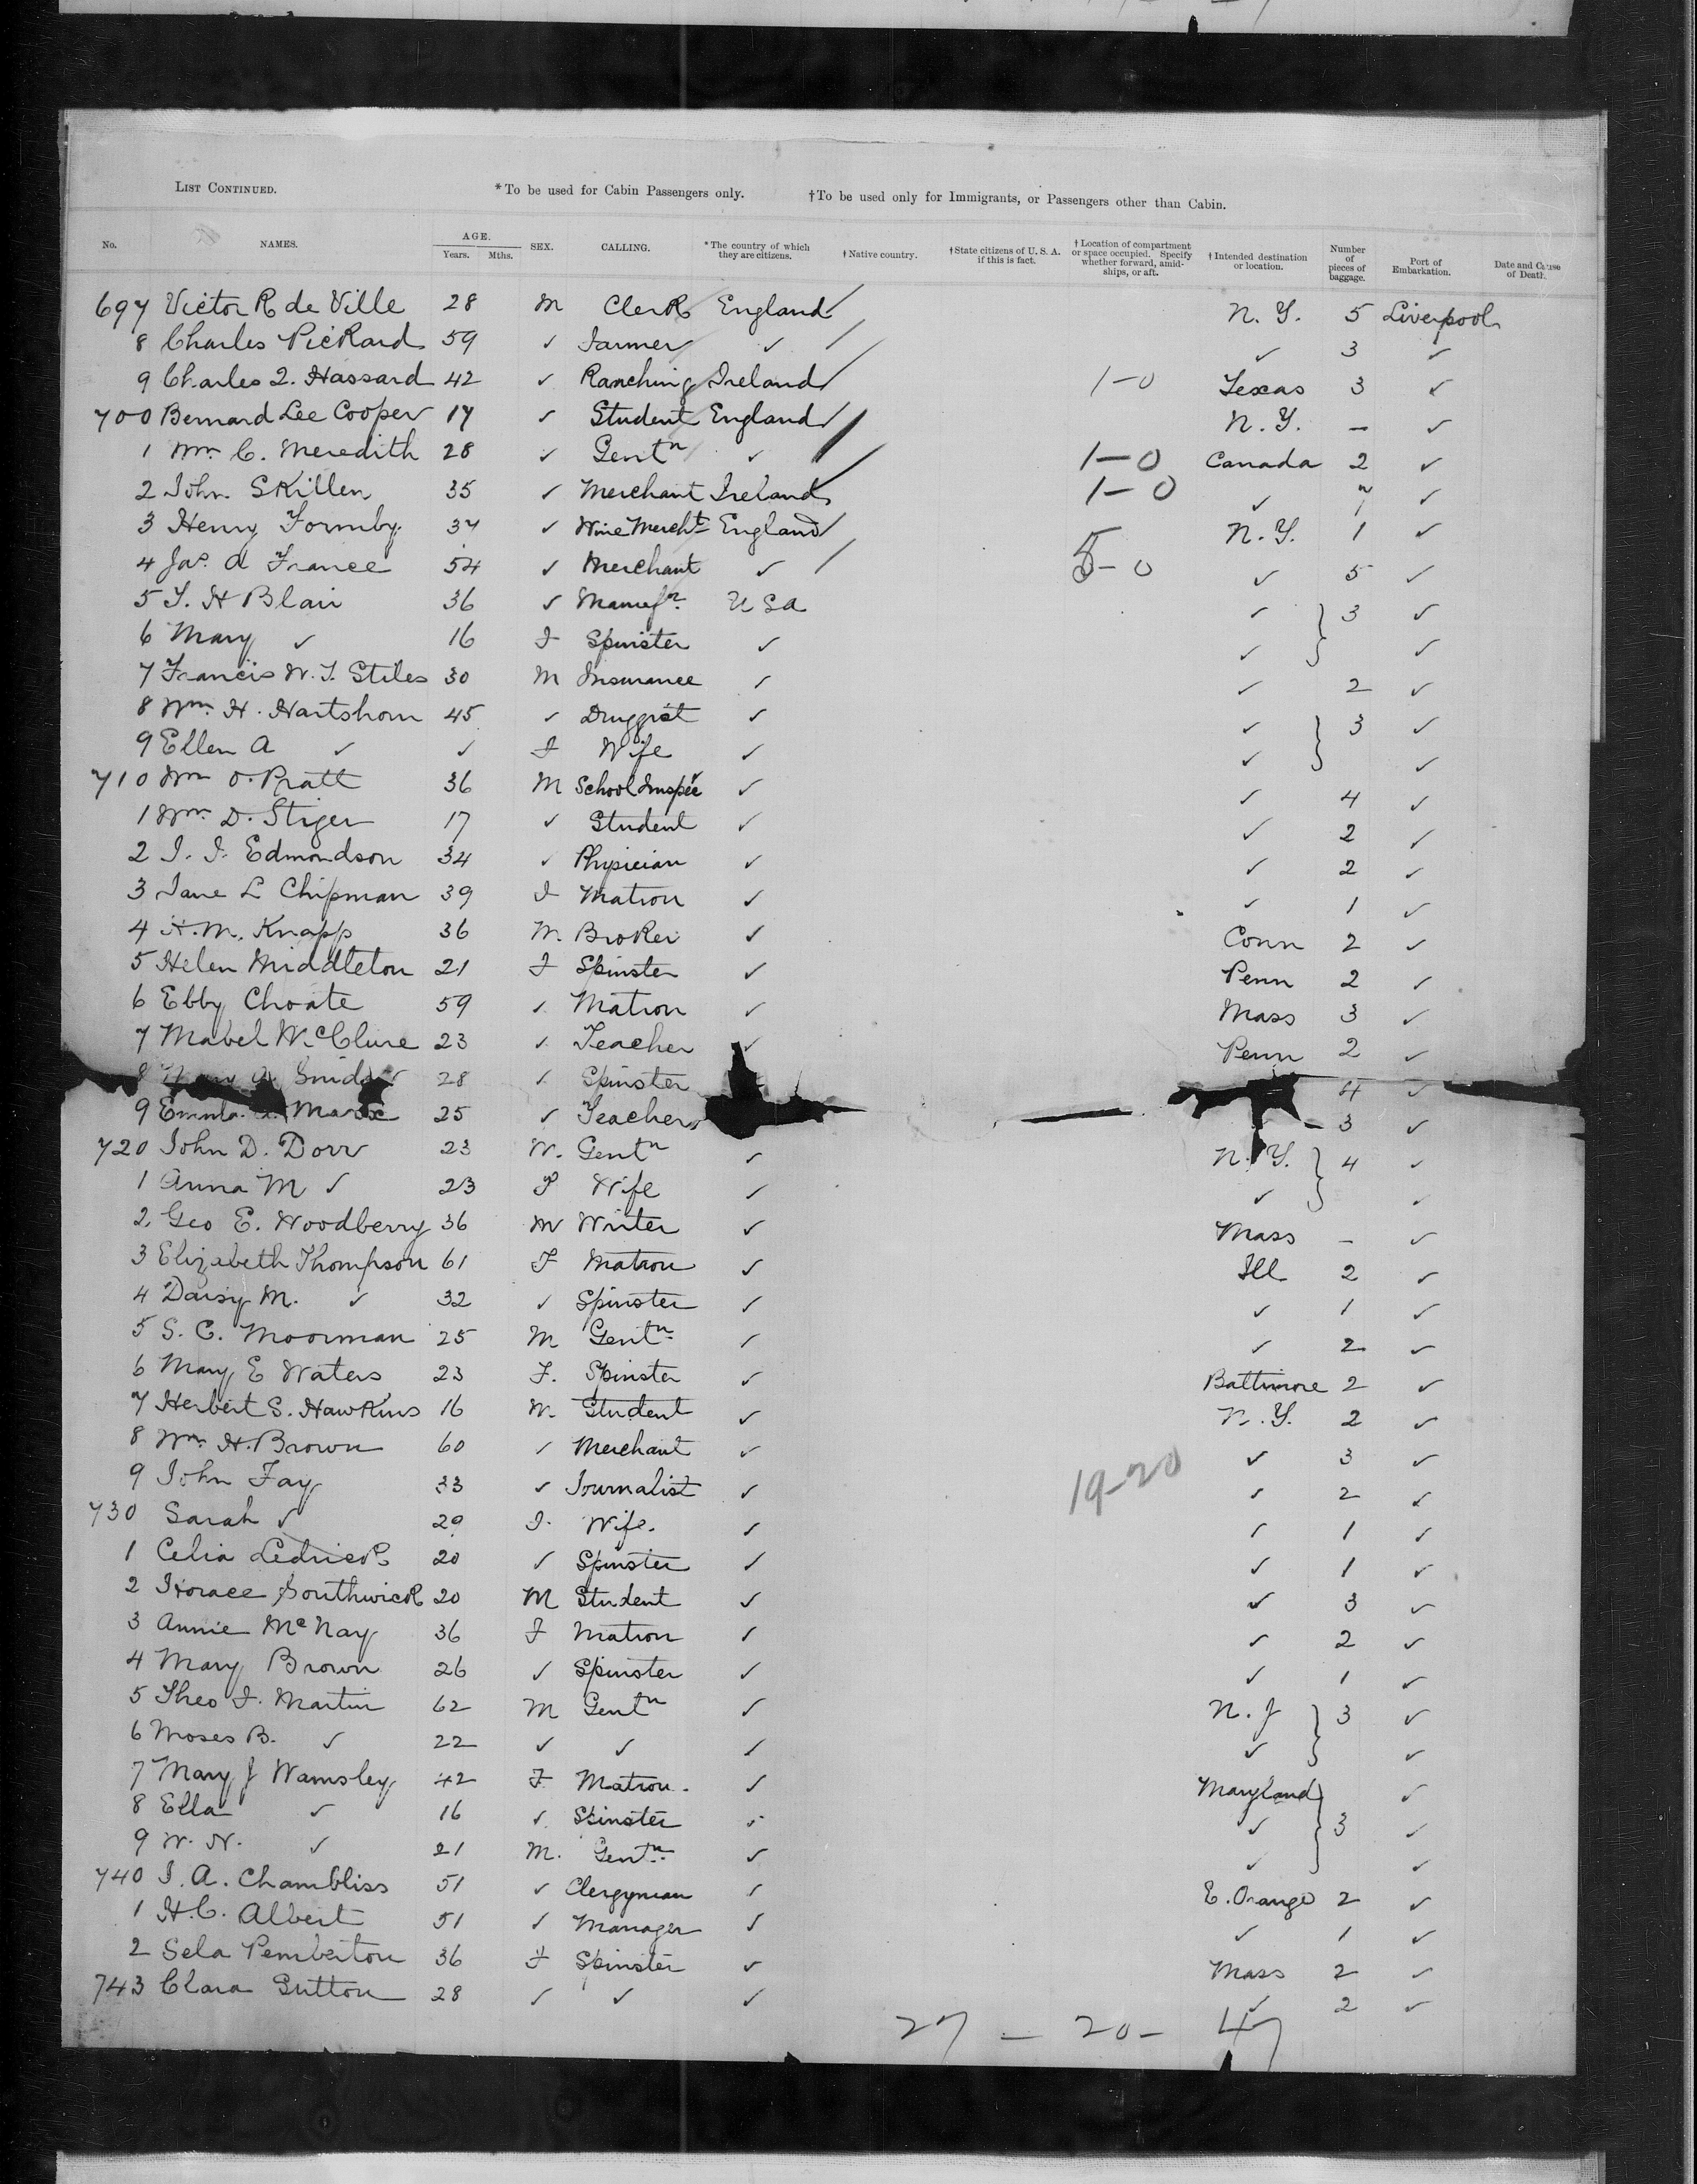 LIST CONTINUED. *To be used for Cabin Passengers only. †To be used only for Immigrants, or Passengers other than Cabin.
No. NAMES. AGE. Years. Mths. SEX. CALLING. *The country of which they are citizens. †Native country. †State citizens of U.S.A. if this is fact. †Location of compartment or space occupied. Specify whether forward, amidships, or aft. †Intended destination or location. Number of pieces of baggage. Port of Embarkation. Date and Cause of Death.
697 Victor R de Ville 28 M Clerk England N.Y. 5 Liverpool
8 Charles Pickard 59 ✓ Farmer ✓ ✓ 3 ✓
9 Charles 2. Hassard 42 ✓ Ranching Ireland 1-0 Texas 3 ✓
700 Bernard Lee Cooper 17 ✓ Student England N.Y. — ✓
1 Wm C. Meredith 28 ✓ Gentn ✓ 1-0 Canada 2 ✓
2 John Skillen 35 ✓ Merchant Ireland 1-0 ✓ 7 ✓
3 Henry Formby 37 ✓ Wine Mercht England N.Y. 1 ✓
4 Jas. A France 54 ✓ Merchant ✓ 5-0 ✓ 5 ✓
5 T. H Blair 36 ✓ Manufr. USA ✓ 3 ✓
6 Mary ✓ 16 F Spinster ✓ ✓ ✓
7 Francis W. T. Stiles 30 M Insurance ✓ ✓ 2 ✓
8 Wm. H. Hartshorn 45 ✓ Druggist ✓ ✓ 3 ✓
9 Ellen A ✓ ✓ F Wife ✓ ✓ ✓
710 Wm O. Pratt 36 M School Inspec ✓ ✓ 4 ✓
1 Wm. D. Stiger 17 ✓ Student ✓ ✓ 2 ✓
2 J. J. Edmondson 34 ✓ Physician ✓ ✓ 2 ✓
3 Jane L Chipman 39 F Matron ✓ ✓ 1 ✓
4 H. M. Knapp 36 M. Broker ✓ Conn 2 ✓
5 Helen Middleton 21 F Spinster ✓ Penn 2 ✓
6 Ebby Choate 59 ✓ Matron ✓ Mass 3 ✓
7 Mabel McClure 23 ✓ Teacher ✓ Penn 2 ✓
8 Snider 28 ✓ Spinster 4 ✓
9 Emma Marx 25 ✓ Teacher 3 ✓
720 John D. Dorr 23 M. Gentn ✓ N.Y. 4 ✓
1 Anna M ✓ 23 F Wife ✓ ✓ ✓
2 Geo E. Woodberry 36 M Writer ✓ Mass — ✓
3 Elizabeth Thompson 61 F Matron ✓ Ill 2 ✓
4 Daisy M. ✓ 32 ✓ Spinster ✓ ✓ 1 ✓
5 S. C. Moorman 25 M Gentn. ✓ ✓ 2 ✓
6 Mary E Waters 23 F. Spinster ✓ Baltimore 2 ✓
7 Herbert S. Hawkins 16 M. Student ✓ N.Y. 2 ✓
8 Wm. H. Brown 60 ✓ Merchant ✓ ✓ 3 ✓
9 John Fay 33 ✓ Journalist ✓ 19-20 ✓ 2 ✓
730 Sarah ✓ 29 F. Wife. ✓ ✓ 1 ✓
1 Celia Ledrick 20 ✓ Spinster ✓ ✓ 1 ✓
2 Horace Southwick 20 M Student ✓ ✓ 3 ✓
3 Annie McNay 36 F Matron ✓ ✓ 2 ✓
4 Mary Brown 26 ✓ Spinster ✓ ✓ 1 ✓
5 Theo F. Martin 62 M Gentn ✓ N.J 3 ✓
6 Moses B. ✓ 22 ✓ ✓ ✓ ✓ ✓
7 Mary J Wamsley 42 F Matron. ✓ Maryland ✓
8 Ella ✓ 16 ✓ Spinster ✓ ✓ 3 ✓
9 W. N. ✓ 21 M. Gentn. ✓ ✓ ✓
740 J. A. Chambliss 51 ✓ Clergyman ✓ E. Orange 2 ✓
1 H. C. Albert 51 ✓ Manager ✓ ✓ 1 ✓
2 Sela Pemberton 36 F Spinster ✓ Mass 2 ✓
743 Clara Sutton 28 ✓ ✓ ✓ ✓ 2 ✓
27 — 20 — 47